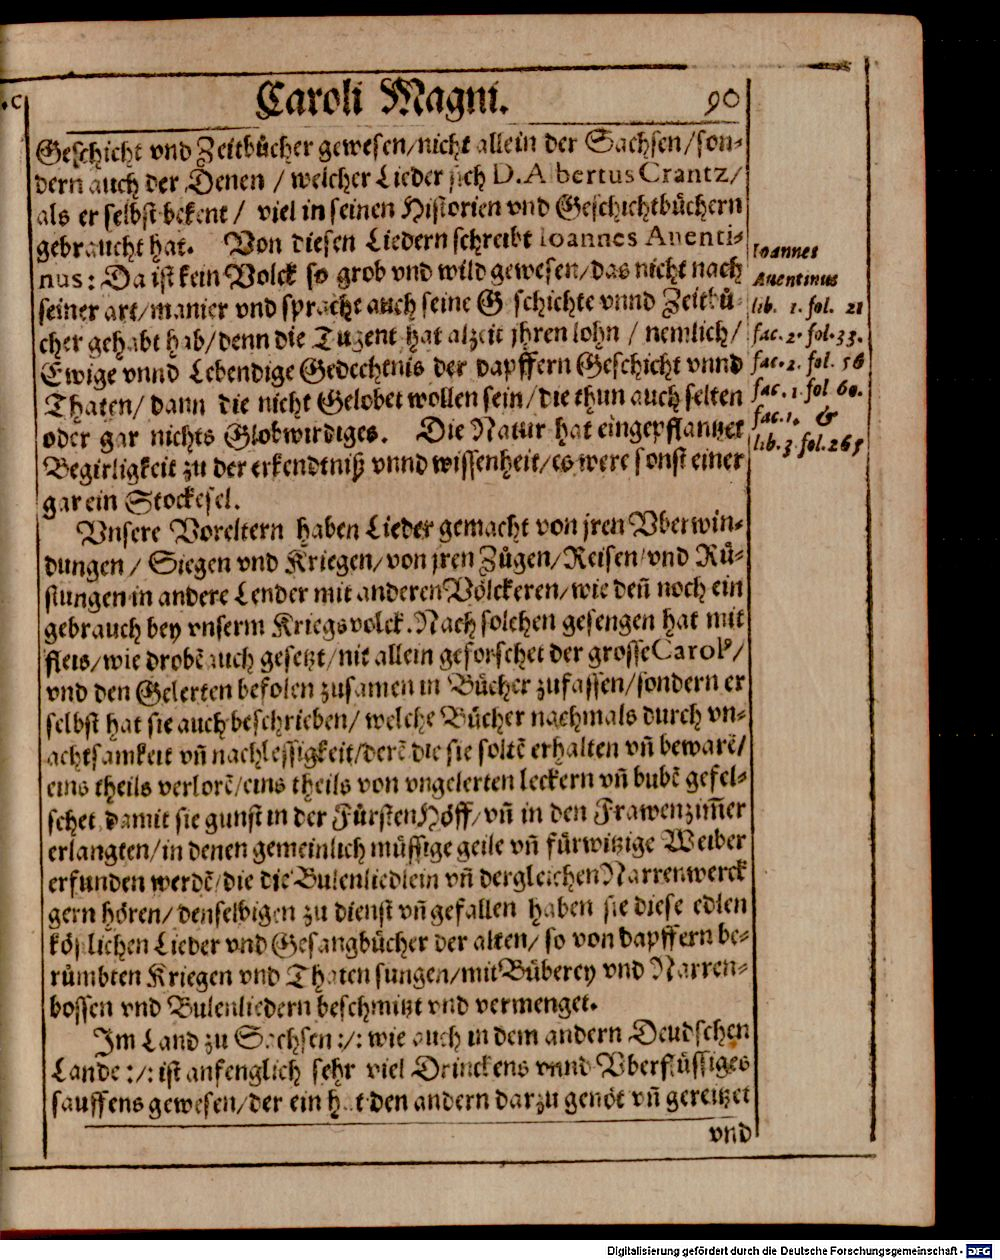 Caroli Magni. 90
Geschicht vnd Zeitbůcher gewesen/nicht allein der Sachsen/son-
dern auch der Denen / welcher Lieder sich D. Albertus Crantz/
als er selbst bekent / viel in seinen Historien vnd Geschichtbůchern
gebraucht hat. Von diesen Liedern schreibt Ioannes Auenti-
nus: Da ist kein Volck so grob vnd wild gewesen/das nicht nach
seiner art/manier vnd spracht auch seine G schichte vnnd Zeitbů-
cher gehabt hab/denn die Tugent hat alzeit jhren lohn / nemlich/
Ewige vnnd Lebendige Gedechtnis der dapffern Geschicht vnnd
Thaten/ dann die nicht Gelobet wollen sein/die thun auch selten
oder gar nichts Globwirdiges. Die Natur hat eingepflantzet
Begirligkeit zu der erkendtniß vnnd wissenheit/es were sonst einer
gar ein Stockesel.
Ioannes
Auentinus
lib. 1. fol. 21
fac. 2. fol. 33.
fac. 2. fol. 56
fac. 1. fol 60.
fac. 1. &
lib. 3. fol. 265
Vnsere Voreltern haben Lieder gemacht von jren Vberwin-
dungen / Siegen vnd Kriegen/von jren Zůgen/Reisen/vnd Rů-
stungen in andere Lender mit anderen Völckeren/wie deñ noch ein
gebrauch bey vnserm Kriegsvolck. Nach solchen gesengen hat mit
fleis/wie drobẽ auch gesetzt/nit allein geforschet der grosse Carolꝰ/
vnd den Gelerten befolen zusamen in Bůcher zufassen/sondern er
selbst hat sie auch beschrieben/ welche Bůcher nachmals durch vn-
achtsamkeit vñ nachlessigkeit/derẽ die sie soltẽ erhalten vñ bewarẽ/
eins theils verlorẽ/eins theils von vngelerten leckern vñ bubẽ gefel-
schet damit sie gunst in der Fůrsten Höff/vñ in den Frawenzim̃er
erlangten/in denen gemeinlich můssige geile vñ fůrwitzige Weiber
erfunden werdẽ/die die Bulenliedlein vñ dergleichen Narrenwerck
gern hören/denselbigen zu dienst vñ gefallen haben sie diese edlen
köstlichen Lieder vnd Gesangbůcher der alten/ so von dapffern be-
růmbten Kriegen vnd Thaten sungen/mit Bůberey vnd Narren-
bossen vnd Bulenliedern beschmitzt vnd vermenget.
Im Land zu Sachsen :/: wie auch in dem andern Deudschen
Lande :/: ist anfenglich sehr viel Drinckens vnnd Vberflůssiges
sauffens gewesen/der ein hat den andern darzu genöt vñ gereitzet
vnd
Digitalisierung gefördert durch die Deutsche Forschungsgemeinschaft - DFG